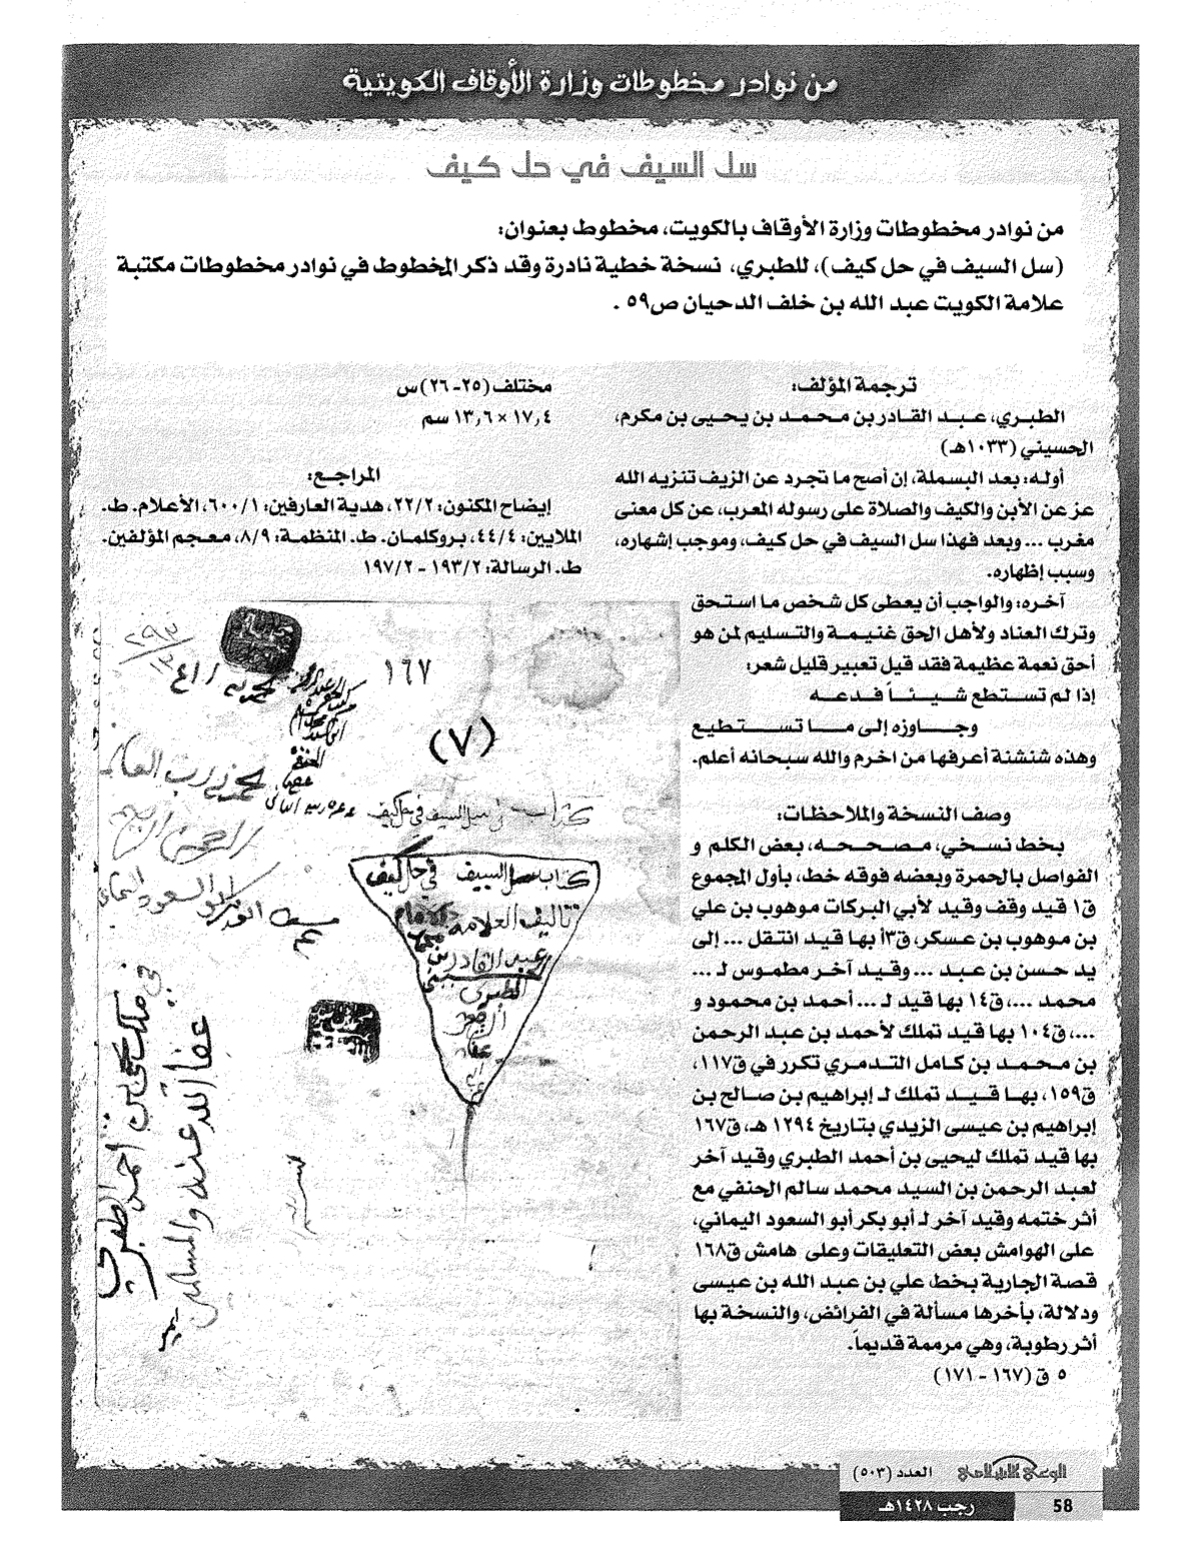 من نوادر مخطوطات وزارة الأوقاف الكويتية
سل السيف في حل كيف
من نوادر مخطوطات وزارة الأوقاف بالكويت، مخطوط بعنوان:
(سل السيف في حل كيف)، للطبري، نسخة خطية نادرة وقد ذكر المخطوط في نوادر مخطوطات مكتبة
علامة الكويت عبد الله بن خلف الدحيان ص٥٩ .
ترجمة المؤلف:
الطبري، عبد القادر بن محمد بن يحيى بن مكرم،
الحسيني (١٠٣٣هـ)
أوله: بعد البسملة، إن أصح ما تجرد عن الزيف تنزيه الله
عز عن الأين والكيف والصلاة على رسوله المعرب، عن كل معنى
مغرب ... وبعد فهذا سل السيف في حل كيف، وموجب إشهاره،
وسبب إظهاره.
آخره: والواجب أن يعطى كل شخص ما استحق
وترك العناد ولأهل الحق غنيمة والتسليم لمن هو
أحق نعمة عظيمة فقد قيل تعبير قليل شعر:
إذا لم تستطع شيئاً فدعه
وجاوزه إلى ما تستطيع
وهذه شنشنة أعرفها من اخرم والله سبحانه أعلم.
وصف النسخة والملاحظات:
بخط نسخي، مصححه، بعض الكلم و
الفواصل بالحمرة وبعضه فوقه خط، بأول المجموع
ق١ قيد وقف وقيد لأبي البركات موهوب بن علي
بن موهوب بن عسكر، ق٣أ بها قيد انتقل ... إلى
يد حسن بن عبد ... وقيد آخر مطموس لـ ...
محمد ...، ق١٤ بها قيد لـ ... أحمد بن محمود و
...، ق١٠٤ بها قيد تملك لأحمد بن عبد الرحمن
بن محمد بن كامل التدمري تكرر في ق١١٧،
ق١٥٩، بها قيد تملك لـ إبراهيم بن صالح بن
إبراهيم بن عيسى الزيدي بتاريخ ١٢٩٤ هـ، ق١٦٧
بها قيد تملك ليحيى بن أحمد الطبري وقيد آخر
لعبد الرحمن بن السيد محمد سالم الحنفي مع
أثر ختمه وقيد آخر لـ أبو بكر أبو السعود اليماني،
على الهوامش بعض التعليقات وعلى هامش ق١٦٨
قصة الجارية بخط علي بن عبد الله بن عيسى
ودلالة، بآخرها مسألة في الفرائض، والنسخة بها
أثر رطوبة، وهي مرممة قديماً.
٥ ق (١٦٧ - ١٧١)
مختلف (٢٥- ٢٦) س
١٧,٤ × ١٣,٦ سم
المراجع:
إيضاح المكنون: ٢٢/٢، هدية العارفين: ٦٠٠/١، الأعلام. ط.
الملايين: ٤٤/٤، بروكلمان. ط. المنظمة: ٨/٩، معجم المؤلفين.
ط. الرسالة: ١٩٣/٢ - ١٩٧/٢
١٦٧
(٧)
كتاب سل السيف في حل كيف
كتاب سل السيف في حل كيف
تاليف العلامة الامام
عبد القادر بن
الطبري
في ملك يحيى بن احمد الطبري
عفا الله عنه والمسلمين
الوعي الإسلامي
العدد (٥٠٣)
58
رجب ١٤٢٨هـ